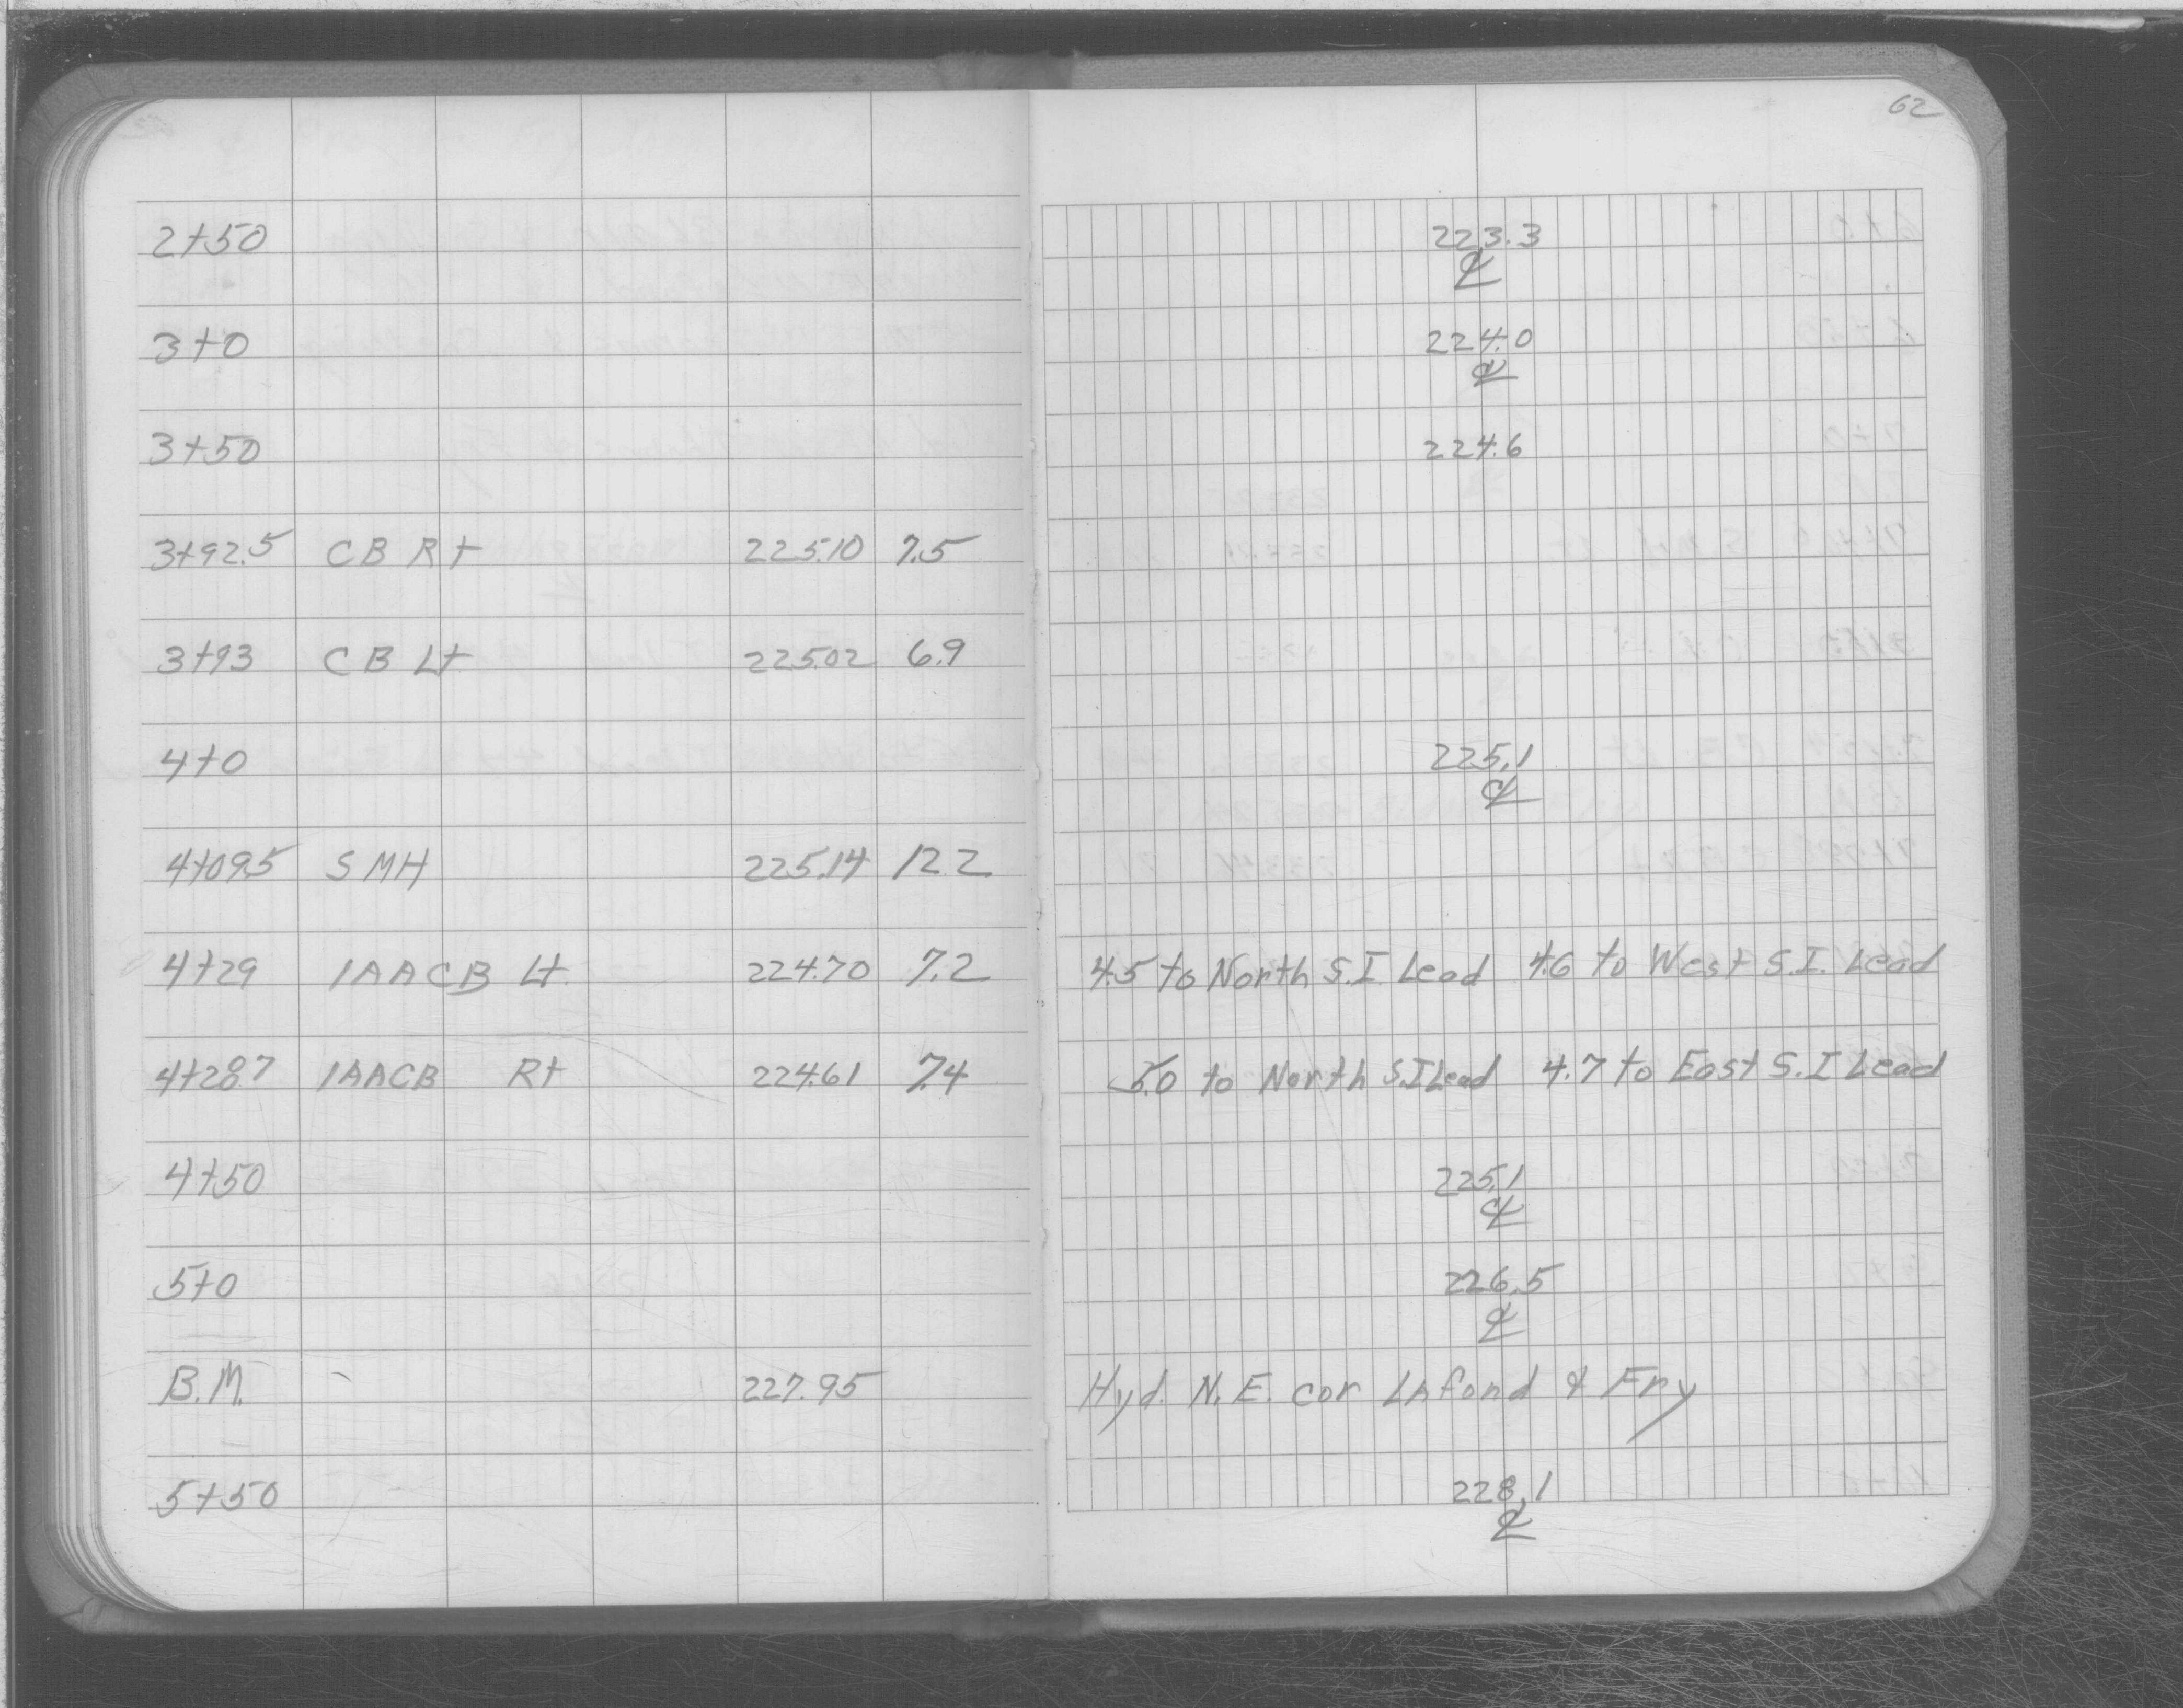 62
2+50 223.3
℄
3+0 224.0
℄
3+50 224.6
3+92.5 CB Rt 225.10 7.5
3+93 CB Lt 225.02 6.9
4+0 225.1
℄
4+09.5 SMH 225.14 12.2
4+29 1AACB Lt 224.70 7.2 4.5 to North S.I. Lead 4.6 to West S.I. Lead
4+28.7 1AACB Rt 224.61 7.4 5.0 to North S.I Lead 4.7 to East S.I Lead
4+50 225.1
℄
5+0 226.5
℄
B.M. 227.95 Hyd. N.E. cor Lafond & Fry
5+50 228.1
℄